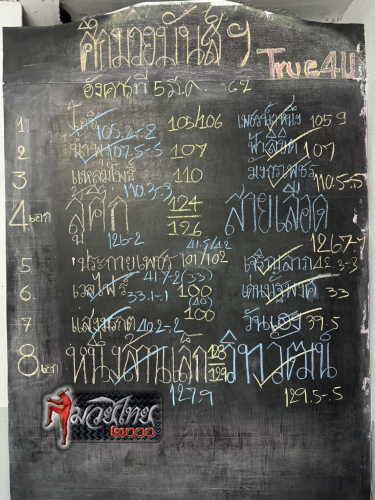 ศึกมวยมันส์ฯ
True4U
อังคารที่ 5 มี.ค. 67
1 โ 105/106 เพชรน้ำหนึ่ง 105.9
105.2-.2
2 107 ฟ้าลิขิต 107
107.5-.5
3 แหลมไพร 110 มังกรเพชร 110.5-.5
110.3-.3
4 เอก สู้ศึก 124/126 สายเลือด
126-.2 126.7-.7
5 ประกายเพชร 101/102 เจริญลาภ 42.3-.3
41.5/42
41.7-.2 (33)
6 เวลไพร 100 33
33.1-.1
(40)
7 แสงมรกต 100 วันเฮง 39.5
40.2-.2
8 เอก หนึ่งล้านเล็ก 128/129 วิทวัฒน์
127.9 129.5-.5
มวยไทย
๒๐๐๐